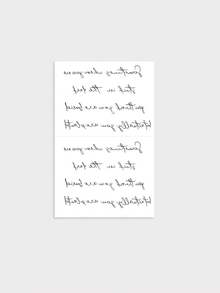 Sometimes when you are
stuck in the dark
you think you are buried
but actually you are planted
Sometimes when you are
stuck in the dark
you think you are buried
but actually you are planted